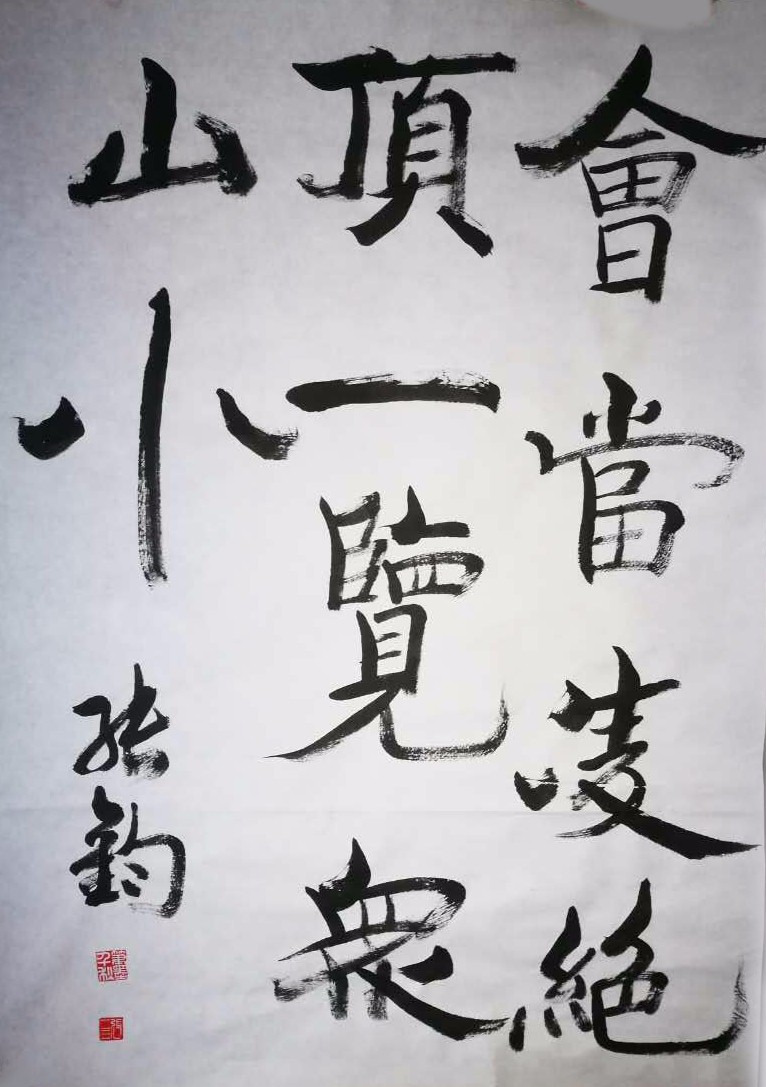 會當凌絕
頂一覽衆
山小
張鈞